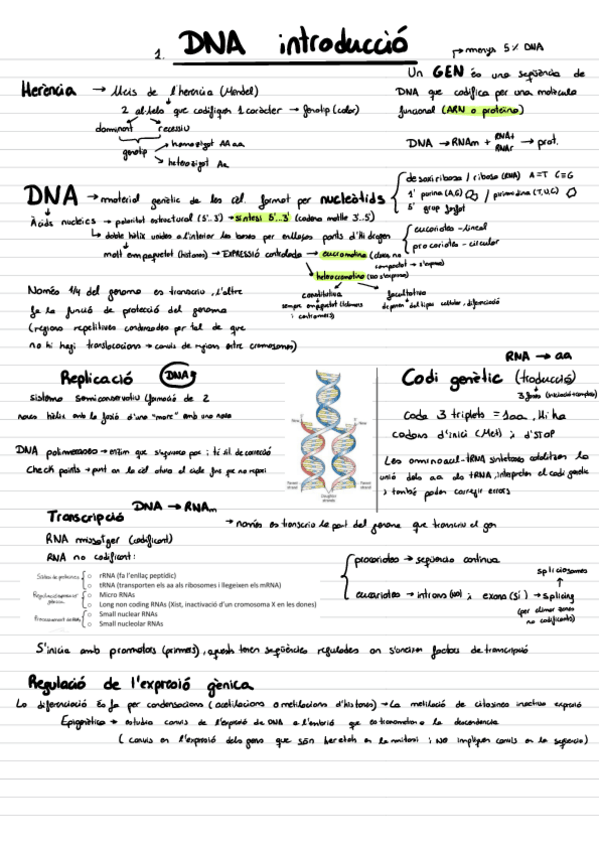 1. DNA introducció
→ menys 5% DNA
Herència → lleis de l'herència (Mendel)
2 al·lels que codifiquen 1 caràcter → fenotip (color)
dominant recessiu
genotip → homozigot AA aa
→ heterozigot Aa
Un GEN és una seqüència de
DNA que codifica per una molècula
funcional (ARN o proteïna)
DNA → RNAm + RNAt RNAr → prot.
DNA → material genètic de les cèl. format per nucleòtids
desoxiribosa / ribosa (RNA) A=T C≡G
1' purina (A,G) / pirimidina (T,U,C)
5' grup fosfat
Àcids nucleics → polaritat estructural (5'..3') → síntesi 5'..3' (cadena motlle 3'..5')
→ doble hèlix unides a l'interior les bases per enllaços ponts d'hidrogen
eucariotes - lineal
procariotes - circular
molt empaquetat (histones) → EXPRESSIÓ controlada → eucromatina (
compactat → s'expressa)
heterocromatina (no s'expressa)
constitutiva
sempre empaquetat (telòmers
i centròmers)
facultativa
depenen del tipus cel·lular i diferenciació
Només 1/4 del genoma es transcriu, l'altre
fa la funció de protecció del genoma
(regions repetitives condensades per tal de que
no hi hagi translocacions → canvis de regions entre cromosomes)
RNA → aa
Replicació DNA
sistema semiconservatiu (formació de 2
noves hèlix amb la fusió d'una "mare" amb una nova
DNA polimerases → enzim que s'equivoca poc i té sist. de correcció
Check points → punt on la cèl atura el cicle fins que no repari
Codi genètic (traducció)
3 fases (iniciació
Cada 3 triplets = 1aa, Hi ha
codons d'inici (Met) i d'STOP
Les aminoacil-tRNA sintetases catalitzen la
unió dels aa als tRNA, interpreten el codi genètic
i també poden corregir errors
DNA → RNAm
Transcripció
→ només es transcriu la part del genoma que transcriu el gen
RNA missatger (codificant)
RNA no codificant:
Síntesi de proteïnes
rRNA (fa l'enllaç peptídic)
tRNA (transporten els aa als ribosomes i llegeixen els mRNA)
Micro RNAs
Long non coding RNAs (Xist, inactivació d'un cromosoma X en les dones)
Small nuclear RNAs
Small nucleolar RNAs
procariotes → seqüència contínua
spliciosomes
eucariotes → introns (no) i exons (sí) → splicing
(per eliminar zones
no codificants)
S'inicia amb promotors (primers), aquests tenen seqüències regulades on s'uneixen factors de transcripció
Regulació de l'expressió gènica
La diferenciació es fa per condensacions (acetilacions o metilacions d'histones) → La metilació de citosines inactiva expressió
Epigenètica → estudia canvis de l'expressió de DNA a l'embrió que es transmeten a la descendència
(canvis en l'expressió dels gens que són heretats en la mitosi i NO impliquen canvis en la seqüència)